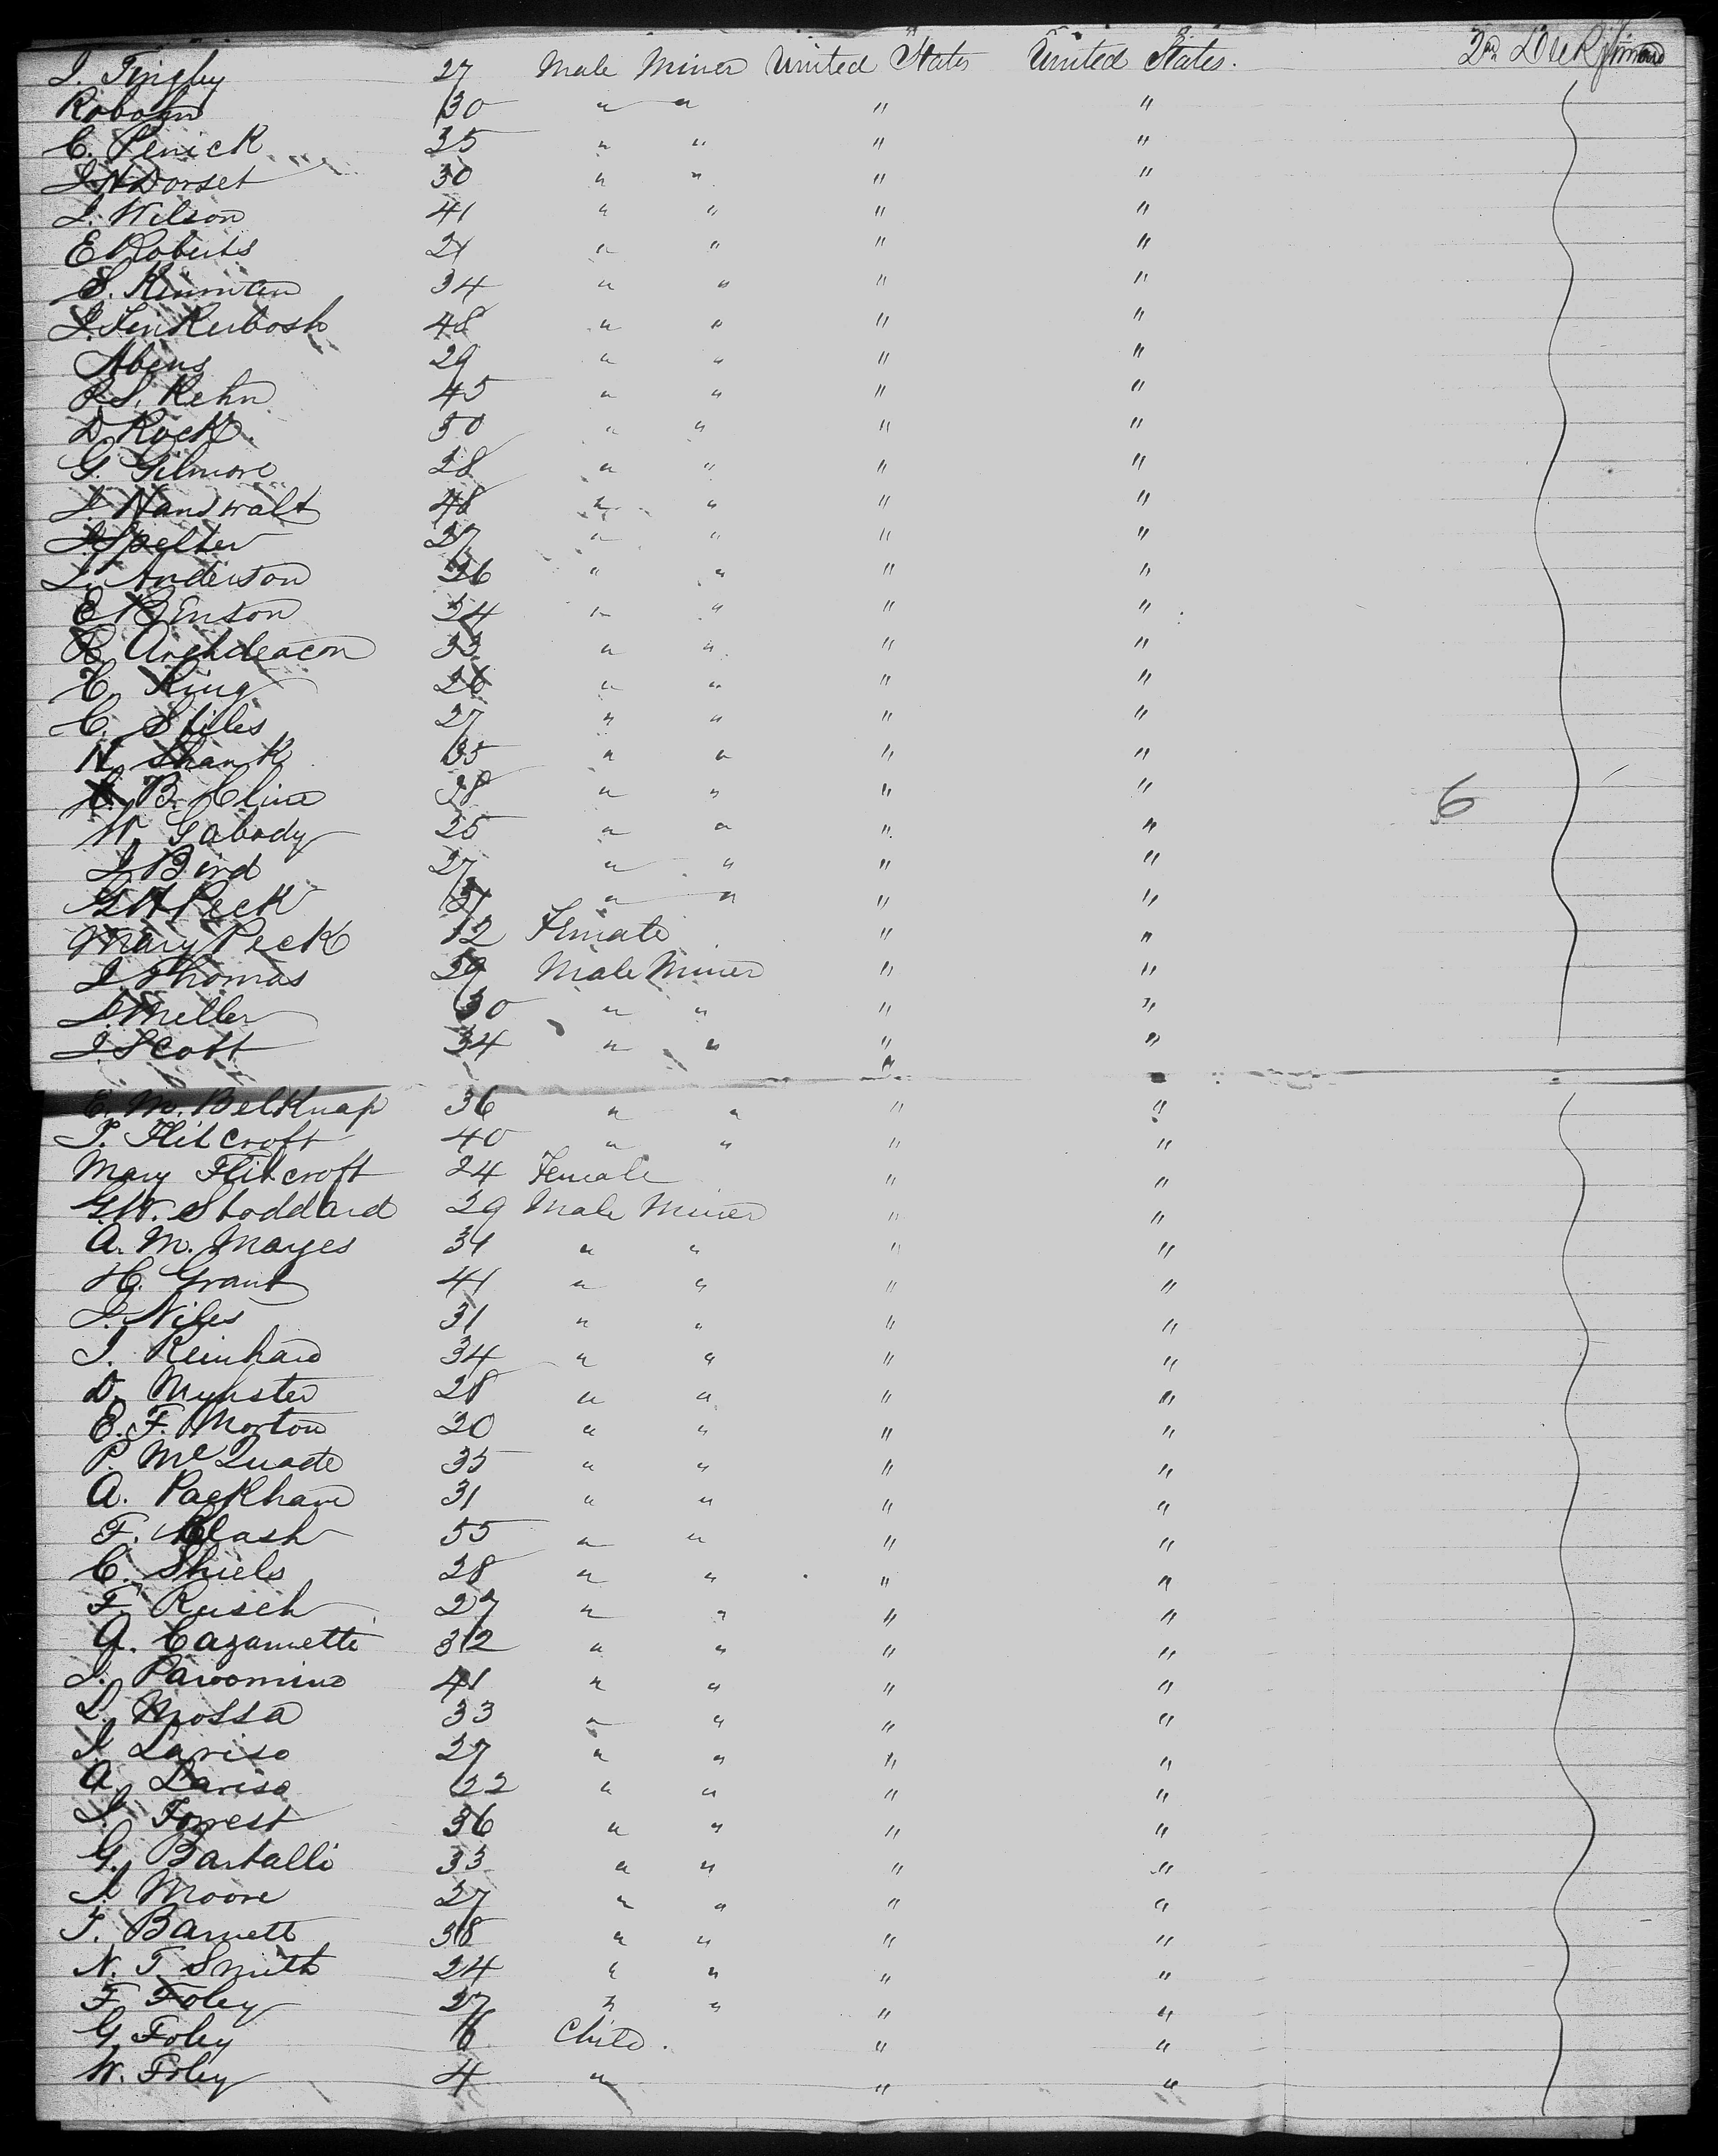 J. Tingley 27 Male Miner United States United States. 2nd
Robohm 30 " " " "
C. Penick 35 " " " "
J H Dorset 30 " " " "
J. Wilson 41 " " " "
E Roberts 24 " " " "
S. Kinman 34 " " " "
J. Fenkerbosh 48 " " " "
Abens 29 " " " "
P. S. Kehn 45 " " " "
D. Rock 50 " " " "
G. Gilmore 28 " " " "
J. Handwalt 48 " " " "
J Spelter 27 " " " "
L. Anderson 36 " " " "
E Benson 34 " " " "
R. Archdeacon 33 " " " "
C. King 26 " " " "
C. Stiles 27 " " " "
H. Shank 35 " " " "
C. B. Cline 38 " " " " 6
W. Gabody 25 " " " "
J Bird 27 " " " "
G H Peck 31 " " " "
Mary Peck 12 Female " "
J. Thomas 39 Male Miner " "
J. Miller 30 " " " "
J. Scott 34 " " " "
E. M. Belknap 36 " " " "
T. Flitcroft 40 " " " "
Mary Flitcroft 24 Female " "
G. W. Stoddard 39 Male Miner " "
A. M. Mayes 31 " " " "
H. Grant 41 " " " "
J. Niles 31 " " " "
J. Reinhard 34 " " " "
D. Munster 28 " " " "
E. F. Morton 20 " " " "
P. McQuade 35 " " " "
A. Packham 31 " " " "
F. Clash 55 " " " "
C. Shiels 28 " " " "
F. Rusch 27 " " " "
A. Cazametti 32 " " " "
J. 41 " " " "
L. Mossa 33 " " " "
J. Lariso 27 " " " "
A. Lariso 22 " " " "
J. Forrest 36 " " " "
G. Bartalli 33 " " " "
J. Moore 27 " " " "
T. Barnett 38 " " " "
N. T. Smith 24 " " " "
F Foley 27 " " " "
G. Foley 6 Child. " "
W. Foley 4 " " "